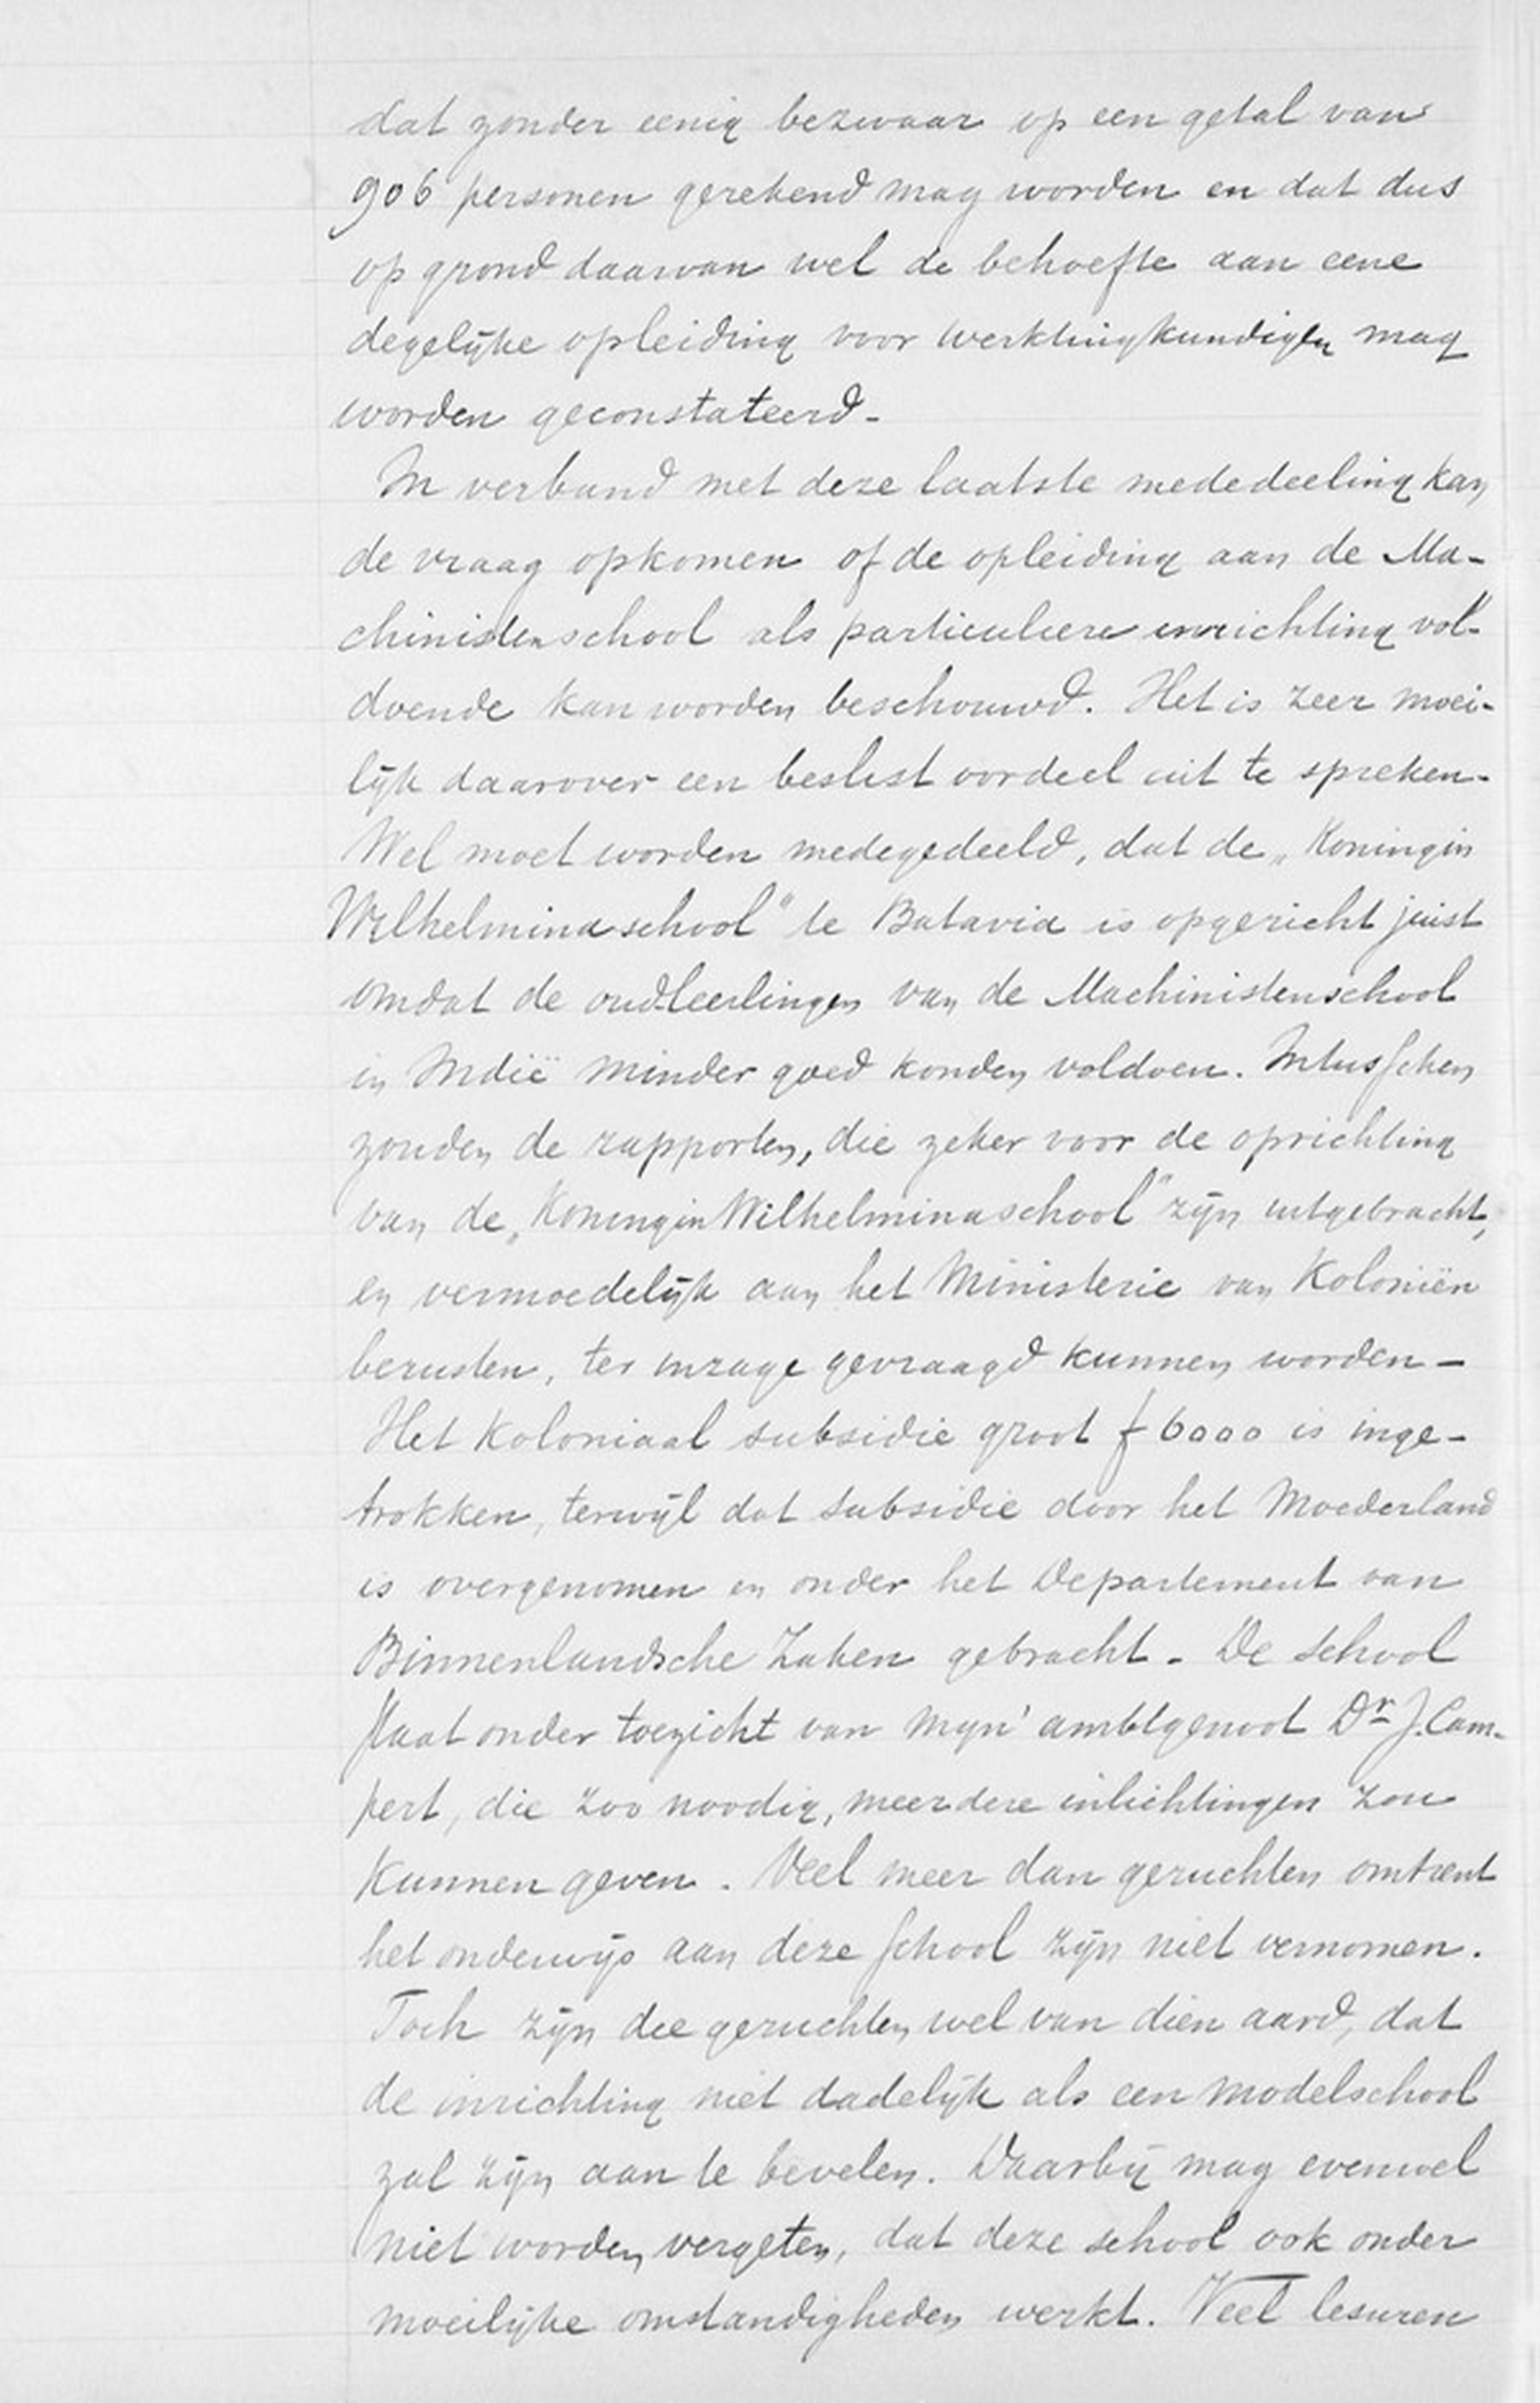 dat zonder eenig bezwaar op een getal van
906 personen gerekend mag worden en dat dus
op grond daarvan wel de behoefte aan eene
degelijke opleiding voor werktuigkundigen mag
worden geconstateerd -
In verband met deze laatste mededeeling kan
de vraag opkomen of de opleiding aan de Ma-
chinistenschool als particuliere inrichting vol-
doende kan worden beschouwd. Het is zeer moei-
lijk daarover een beslist oordeel uit te spreken -
Wel moet worden medegedeeld, dat de „Koningin
Wilhelminaschool" te Batavia is opgericht juist
omdat de oud-leerlingen van de Machinistenschool
in Indië minder goed konden voldoen. Intusschen
zouden de rapporten, die zeker voor de oprichting
van de „Koningin Wilhelminaschool" zijn uitgebracht,
en vermoedelijk aan het Ministerie van Koloniën
berusten, ter inzage gevraagd kunnen worden -
Het Koloniaal subsidie groot f 6000 is inge-
trokken, terwijl dat subsidie door het Moederland
is overgenomen en onder het Departement van
Binnenlandsche Zaken gebracht - De school
staat onder toezicht van mijn ambtgenoot Dr J. Cam-
pert, die zoo noodig, meerdere inlichtingen zou
kunnen geven. Veel meer dan geruchten omtrent
het onderwijs aan deze school zijn niet vernomen.
Toch zijn die geruchten wel van dien aard, dat
de inrichting niet dadelijk als een modelschool
zal zijn aan te bevelen. Daarbij mag evenwel
niet worden vergeten, dat deze school ook onder
moeilijke omstandigheden werkt. Veel lesuren